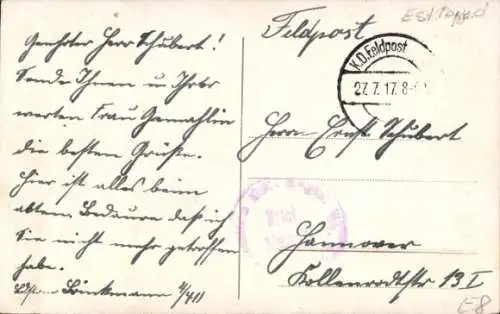 Geehrter Herr Schubert!
Sende Ihnen u Ihrer
werten Frau Gemahlin
die besten Grüße.
Hier ist alles beim
alten. Bedaure daß ich
Sie nicht mehr getroffen
habe.
Brinkmann 4/411
Feldpost
K.D.Feldpost
27.7.17. 8-
Herrn Ernst Schubert
Brief
Hannover
Kollenrodtstr 13 I
E8